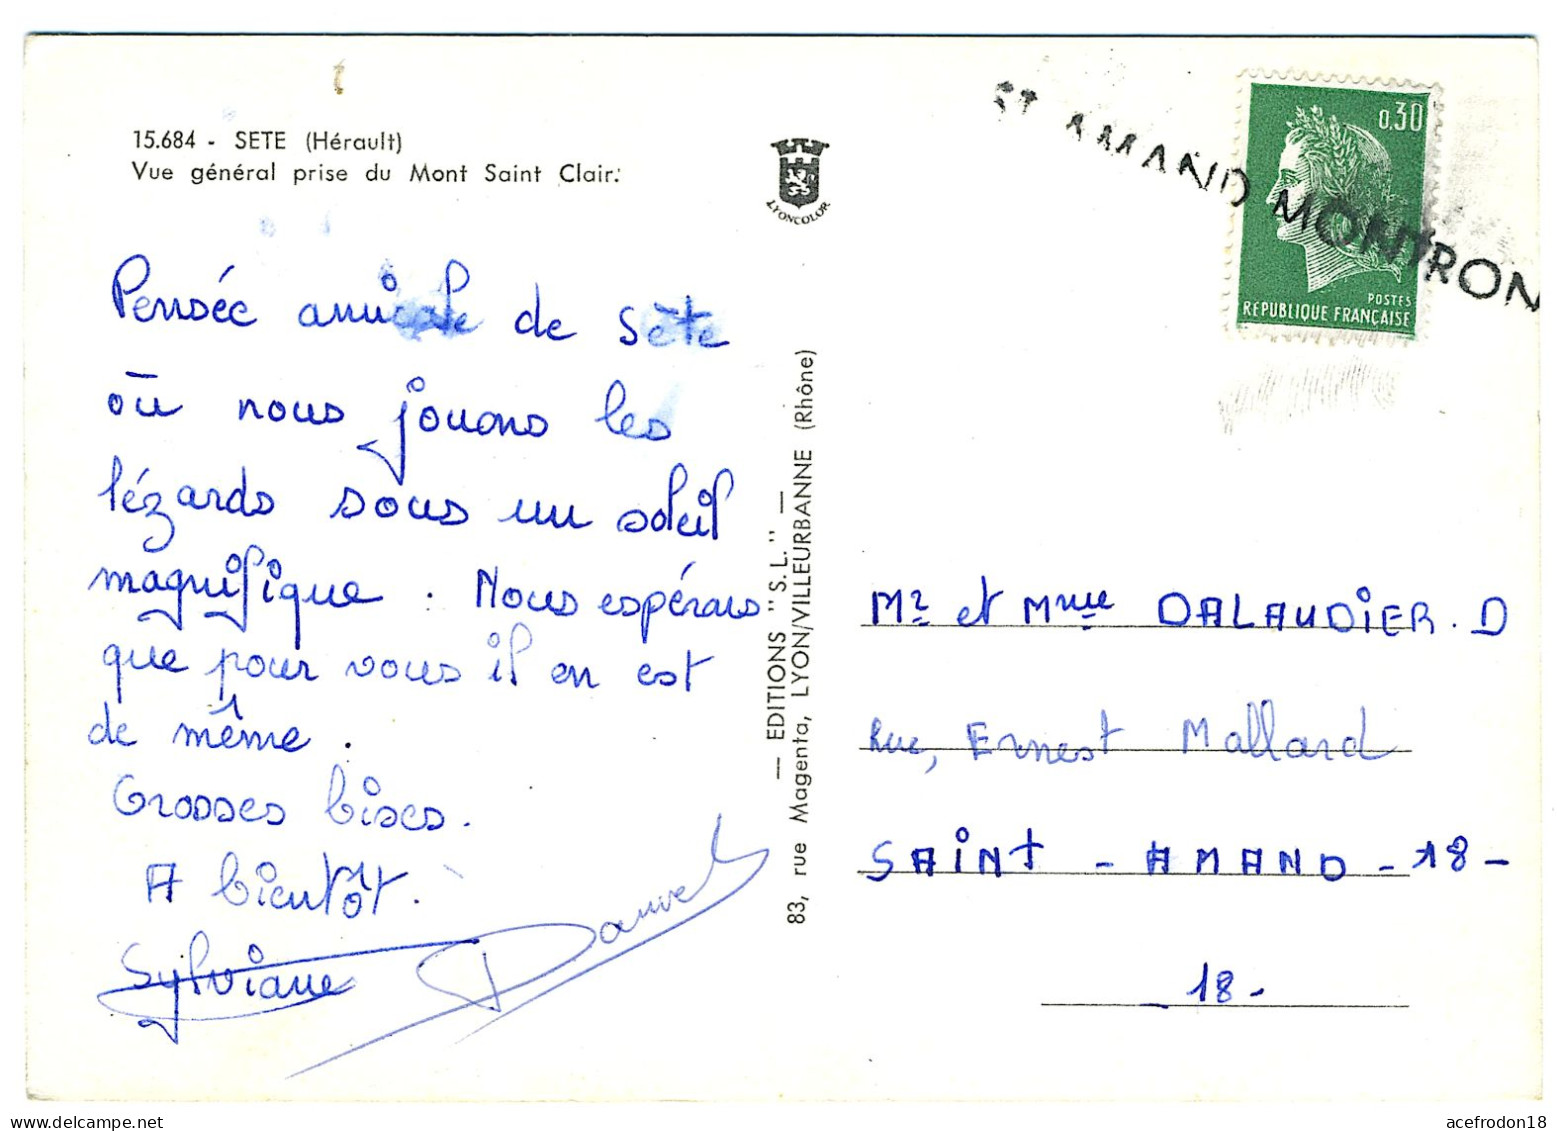 15.684 - SETE (Hérault)
Vue général prise du Mont Saint Clair.
LYONCOLOR
ST AMAND MONTRON
0,30
POSTES
REPUBLIQUE FRANÇAISE
Pensée amicale de Sète
où nous jouons les
lézards sous un soleil
magnifique. Nous espérons
que pour vous il en est
de même.
Grosses bises.
A bientôt.
Sylviane
— EDITIONS "S.L." —
83, rue Magenta, LYON/VILLEURBANNE (Rhône)
Mr et Mme DALAUDIER. D
Rue, Ernest Mallard
SAINT - AMAND - 18 -
- 18 -
acefrodon18